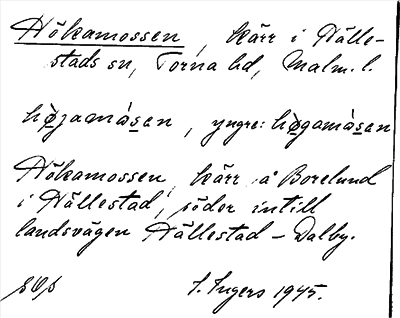 Hökamossen, kärr i Hälle-
stads sn, Torna hd, Malm. l.
høgamåsen, yngre: høgamåsen
Hökamossen, kärr å Borelund
i Hällestad, söder intill
landsvägen Hällestad - Dalby.
I. Ingers 1945.